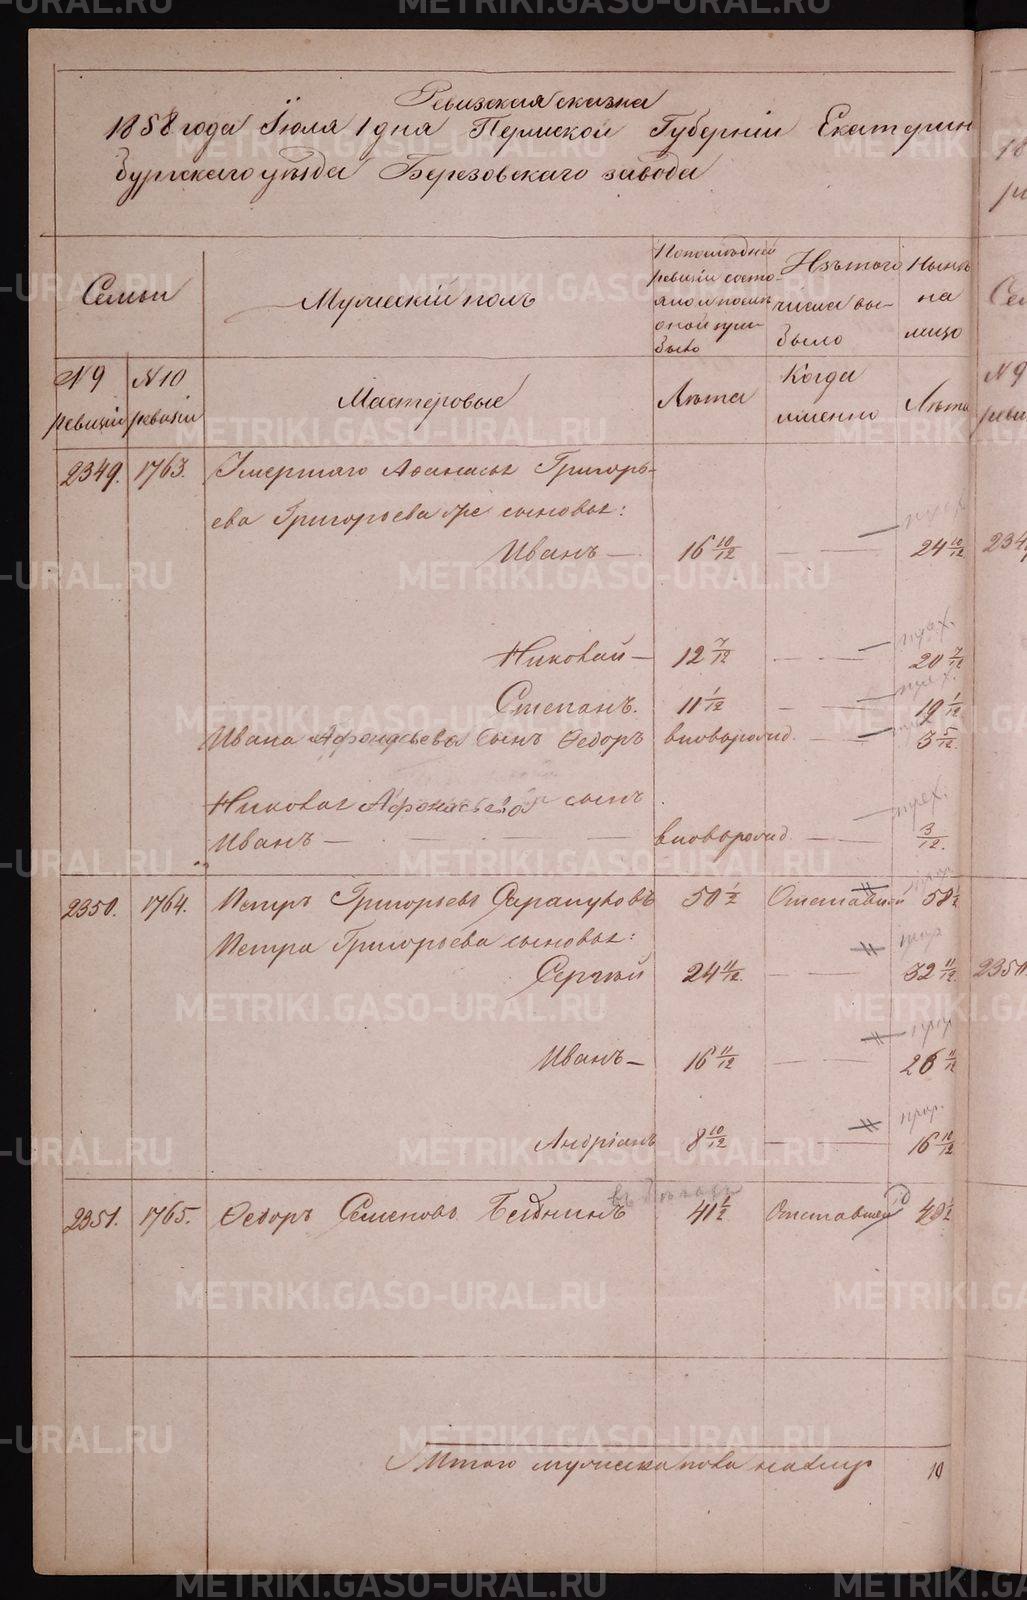 Ревизская сказка
1858 года Іюля 1 дня Пермской Губерніи Екатерин
бургскаго уѣзда Березовскаго завода
Семьи
Мужескій полъ
По последней
ревизіи состо-
яло и после
оной при-
было
Изъ того
числа вы-
было
Нынѣ
на
лицо
N 9
ревизіи
N 10
ревизіи
Мастеровые
Лѣта
Когда
именно
Лѣта
2349. 1763. Умершаго Афанасья Григорь-
ева Григорьева сыновья:
Иванъ — 16 10/12 — — 24 10/12
Николай — 12 7/12 — — 20 7/12
Степанъ. 11 1/12 — — 19 1/12
Ивана Афонасьева сынъ Ѳедоръ вноворожд. — 3 5/12
Николая Афонасьева сынъ
Иванъ — — — — вноворожд. — 3/12.
2350. 1764. Петръ Григорьевъ 50 1/2 Отставной 58 1/2
Петра Григорьева сыновья:
Сергѣй 24 11/12. — — 32 11/12.
Иванъ — 16 11/12 — — 26 11/12
Андріанъ 8 10/12 — 16 10/12
2351. 1765. Ѳедоръ Семеновъ 41 1/2 Отставной 49 1/2
Итого мужеска пола налицо 10
METRIKI.GASO-URAL.RU